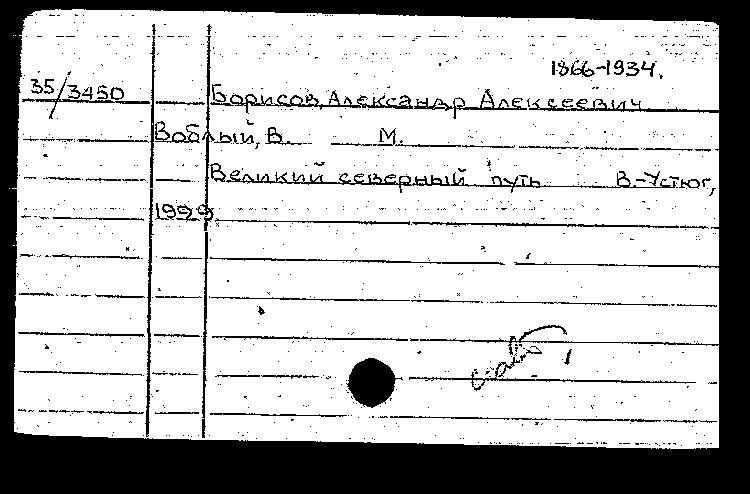 1866-1934.
35/3450 Борисов, Александр Алексеевич.
Воблый, В. М.
Великий северный путь В-Устюг,
1999